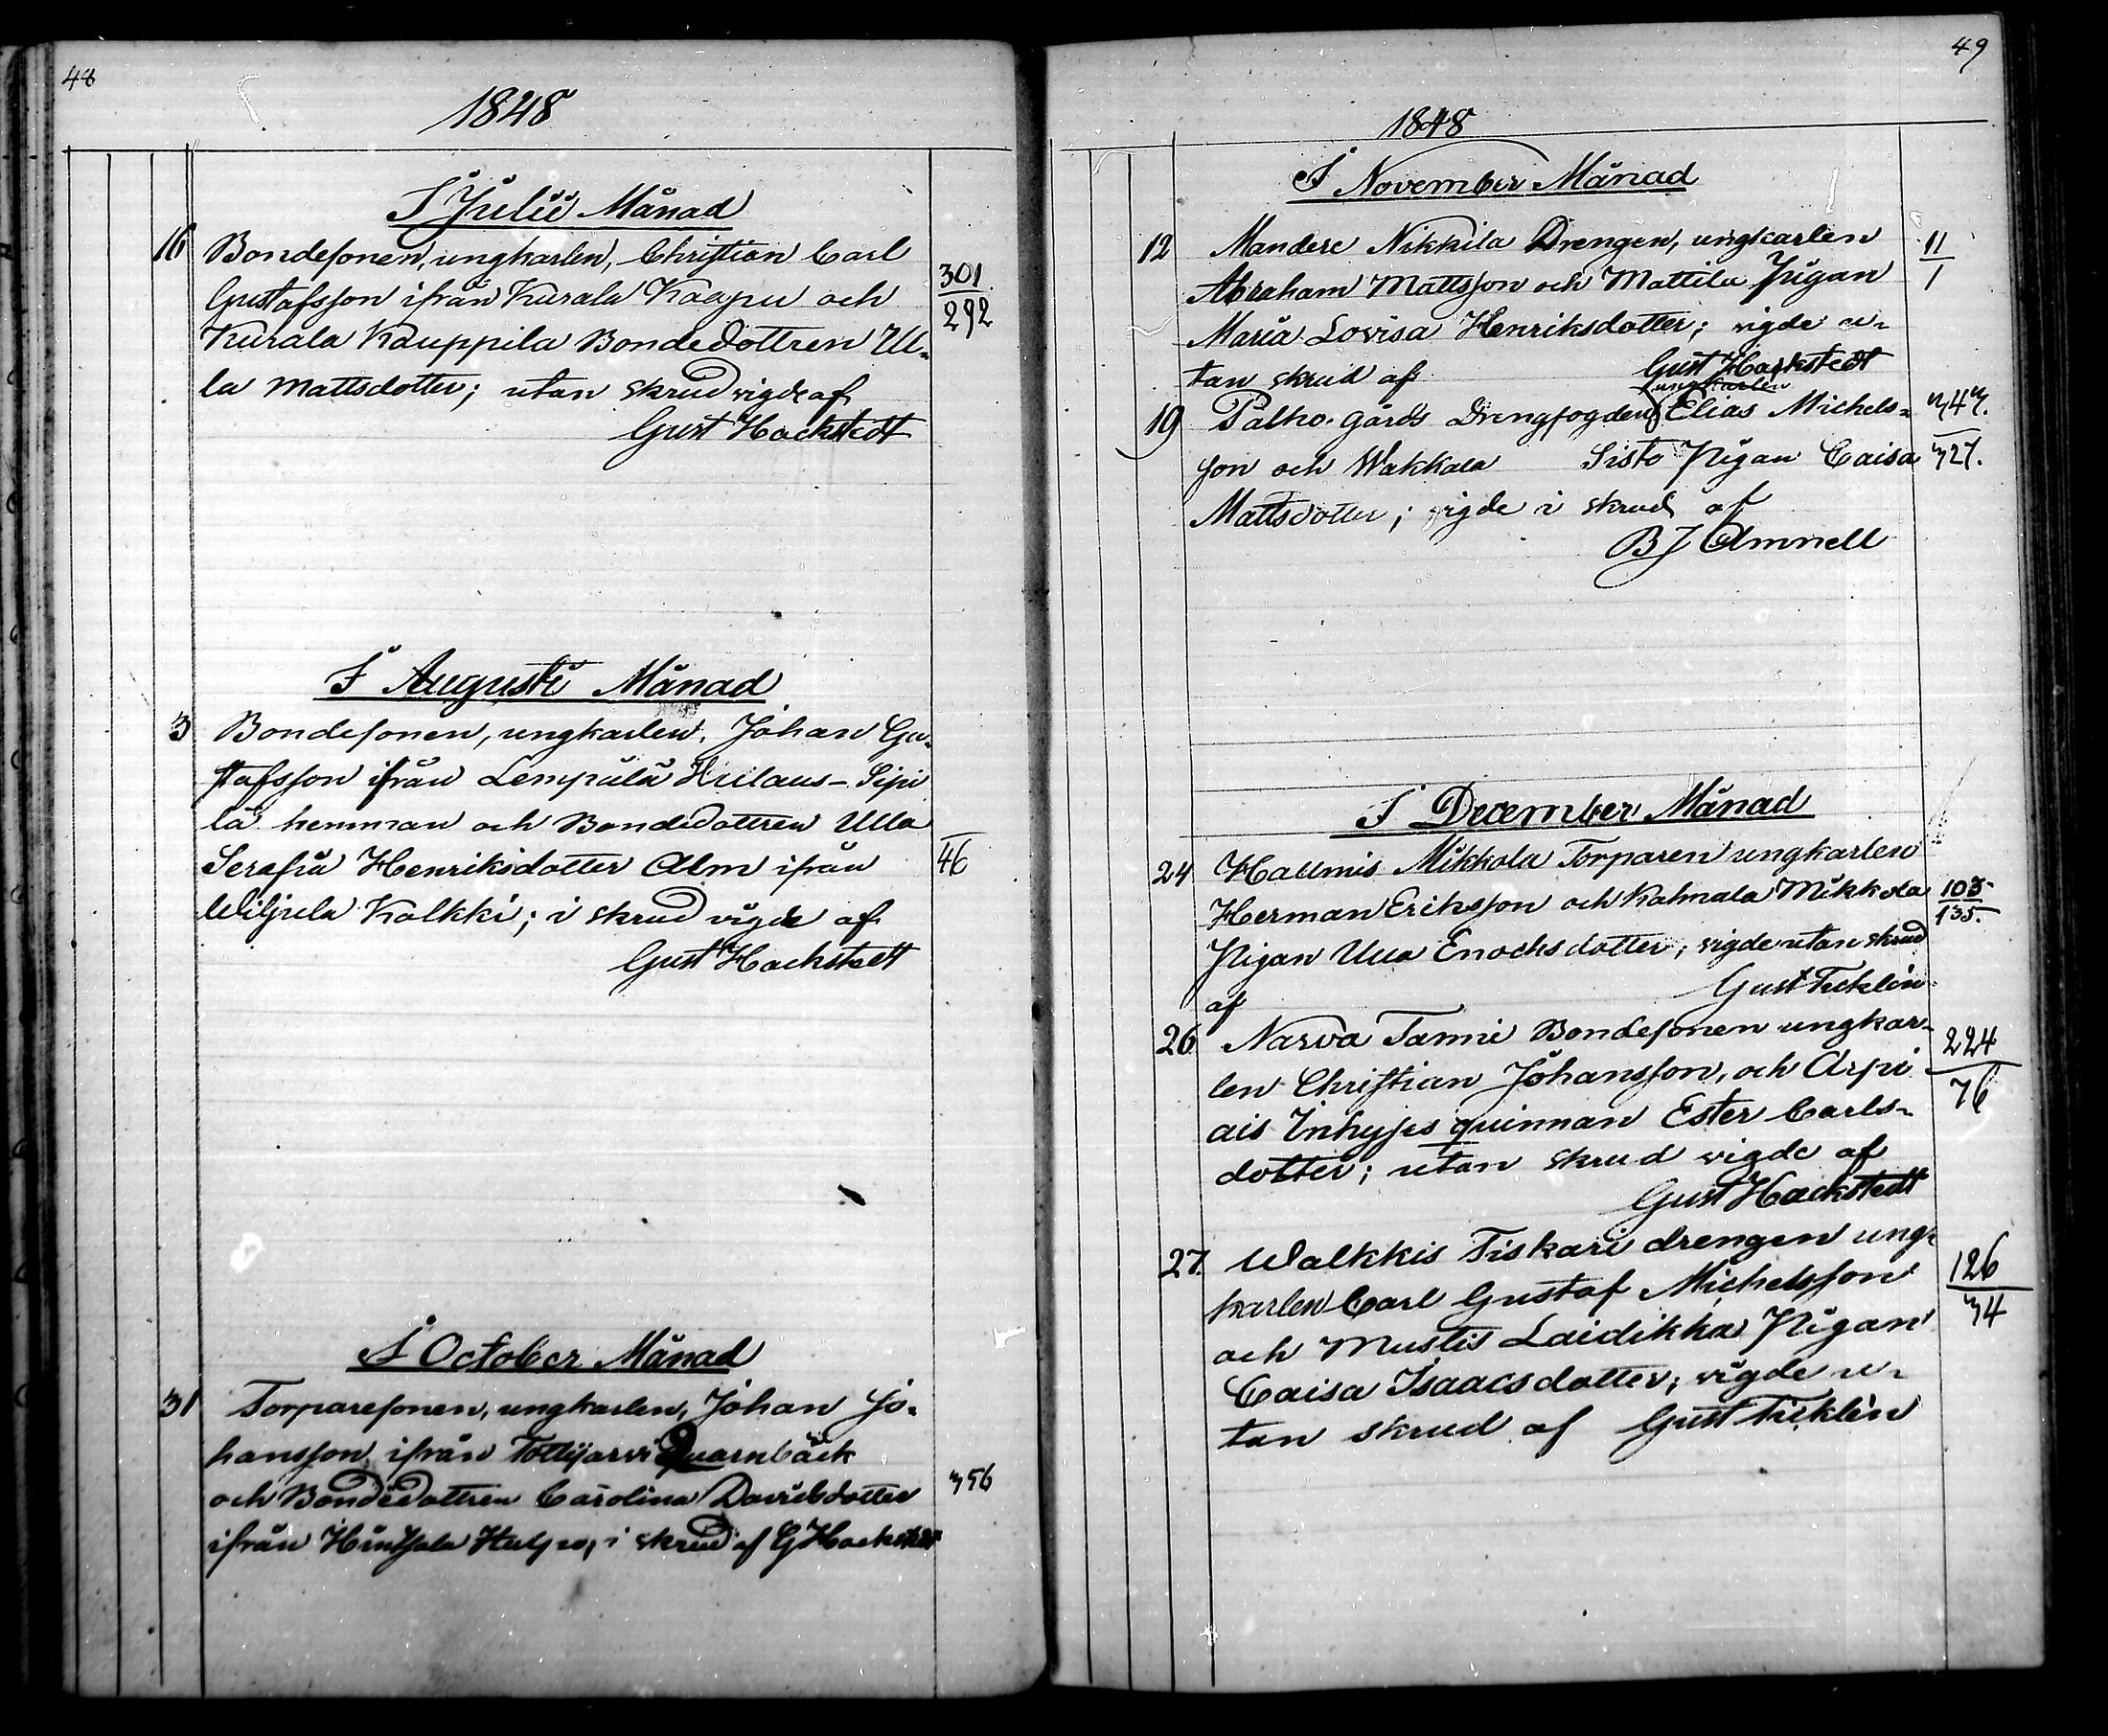 48
1848
I Julii Månad
16 Bondesonen, ungkarlen, Christian Carl
Gustafsson ifrån Kurala Kaapu och 301
292
Kurala Kauppila Bondedottren Ul-
la Mattsdotter; utan skrud vigde af
Gust Hackstedt
I Augusti Månad
3 Bondesonen, ungkarlen, Johan Gu-
stafsson ifrån Lempälä Hulaus-Sipi
lä hemman och Bondedottren Ulla
Serafia Henriksdotter Alm ifrån 46
Wiljula Kolkki; i skrud vigde af
Gust Hackstedt
I October Månad
31 Torparesonen, ungkarlen, Johan Jo-
hansson ifrån Tottijärvi Quarnbäck
och Bondedottren Carolina Davidsdotter 356
ifrån i skrud af G Hackstedt
49
1848
I November Månad
12 Mandere Nikkila Drengen, ungkarlen 11
Abraham Mattsson och Mattila Pigan 1
Maria Lovisa Henriksdotter; vigde u-
tan skrud af Gust Hackstedt
ungkarlen
19 Palho gårds Drengfogden Elias Michels- 347.
son och Wakkala Sisto Pigan Caisa 327.
Mattsdotter; vigde i skrud af
B J Amnell
I December Månad
24 Mikkola Torparen ungkarlen
Herman Eriksson och Kahnala Mikkola 103
135.
Pigan Ulla Enochsdotter; vigde utan skrud
af Gust Ticklén
26 Narva Tanni Bondesonen ungkar- 224
len Christian Johansson, och Arpi 76
ais Inhyses quinnan Ester Carls-
dotter; utan skrud vigde af
Gust Hackstedt
27. Walkkis Tiskari drengen ung-
karlen Carl Gustaf Michelsson 126
34
och Mustis Laidikka Pigan
Caisa Isaacsdotter; vigde u-
tan skrud af Gust Ticklén